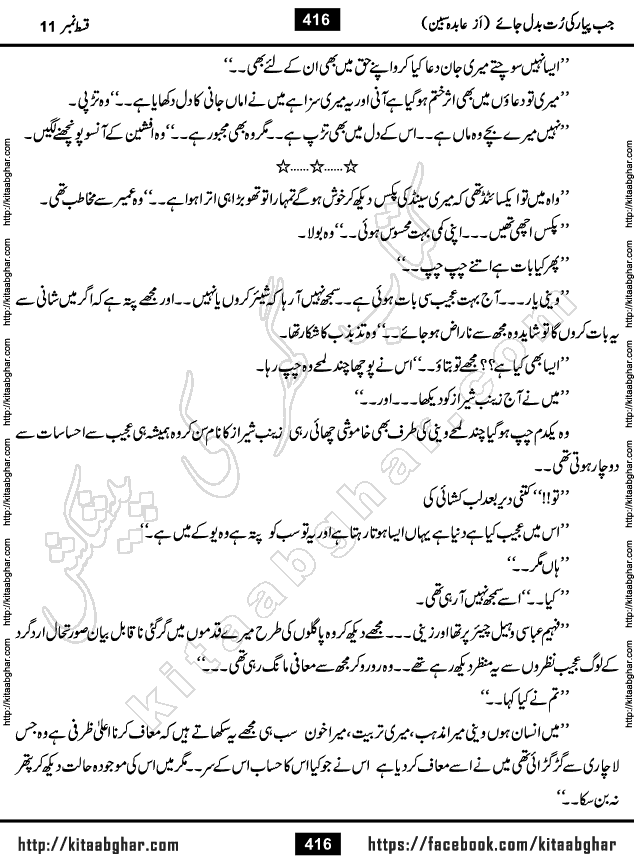 جب پیار کی رُت بدل جائے (از عابدہ سبین)
416
قسط نمبر 11
’’ایسا نہیں سوچتے میری جان دعا کیا کرو اپنے حق میں بھی ان کے لئے بھی۔۔‘‘
’’میری تو دعاؤں میں بھی اثر ختم ہو گیا ہے آنی اور یہ میری سزا ہے میں نے اماں جانی کا دل دکھایا ہے۔۔‘‘وہ تڑپی۔
’’نہیں میرے بچے وہ ماں ہے۔۔اس کے دل میں بھی تڑپ ہے۔۔مگر وہ بھی مجبور ہے۔۔‘‘وہ افشین کے آنسو پونچھنے لگیں۔
☆......☆......☆
’’واہ میں تو ایکسائٹڈ تھی کہ میری سینڈ کی پکس دیکھ کر خوش ہو گے تمہارا تو تھوبڑا ہی اترا ہوا ہے۔۔‘‘وہ عمیر سے مخاطب تھی۔
’’پکس اچھی تھیں۔۔۔اپنی کمی بہت محسوس ہوئی۔۔‘‘وہ بولا۔
’’پھر کیا بات ہے اتنے چپ چپ۔۔‘‘
’’وینی یار۔۔۔آج بہت عجیب سی بات ہوئی ہے۔۔سمجھ نہیں آ رہا کہ شیئر کروں یا نہیں۔۔اور مجھے پتہ ہے کہ اگر میں شانی سے
یہ بات کروں گا تو شاید وہ مجھ سے ناراض ہو جائے۔۔‘‘وہ تذبذب کا شکار تھا۔
’’ایسا بھی کیا ہے؟؟ مجھے تو بتاؤ۔۔‘‘اس نے پوچھا چند لمحے وہ چپ رہا۔
’’میں نے آج زینب شیراز کو دیکھا۔۔۔اور۔۔‘‘
وہ یکدم چپ ہو گیا چند لمحے وینی کی طرف بھی خاموشی چھائی رہی زینب شیراز کا نام سن کر وہ ہمیشہ ہی عجیب سے احساسات سے
دوچار ہوتی تھی۔۔
’’تو!!‘‘کتنی دیر بعد لب کشائی کی
’’اس میں عجیب کیا ہے دنیا ہے یہاں ایسا ہوتا رہتا ہے اور یہ تو سب کو پتہ ہے وہ یو کے میں ہے۔‘‘
’’ہاں مگر۔۔‘‘
’’کیا۔۔‘‘اسے سمجھ نہیں آ رہی تھی۔
’’فہیم عباسی وہیل چیئر پر تھا اور زینی۔۔۔مجھے دیکھ کر وہ پاگلوں کی طرح میرے قدموں میں گر گئی ناقابل بیان صورتحال ارد گرد
کے لوگ عجیب نظروں سے یہ منظر دیکھ رہے تھے۔۔وہ رو رو کر مجھ سے معافی مانگ رہی تھی۔۔۔‘‘
’’تم نے کیا کہا۔۔‘‘
’’میں انسان ہوں وینی میرا مذہب،میری تربیت،میرا خون سب ہی مجھے یہ سکھاتے ہیں کہ معاف کرنا اعلیٰ ظرفی ہے وہ جس
لاچاری سے گڑگڑائی تھی میں نے اسے معاف کر دیا ہے اس نے جو کیا اس کا حساب اس کے سر۔۔مگر میں اس کی موجودہ حالت دیکھ کر پتھر
نہ بن سکا۔۔‘‘
http://kitaabghar.com
416
https://facebook.com/kitaabghar
http://kitaabghar.com http://kitaabghar.com http://kitaabghar.com http://kitaabghar.com http://kitaabghar.com http://kitaabghar.com
http://kitaabghar.com http://kitaabghar.com http://kitaabghar.com http://kitaabghar.com http://kitaabghar.com http://kitaabghar.com
کتاب گھر کی پیشکش
kitaabghar.com